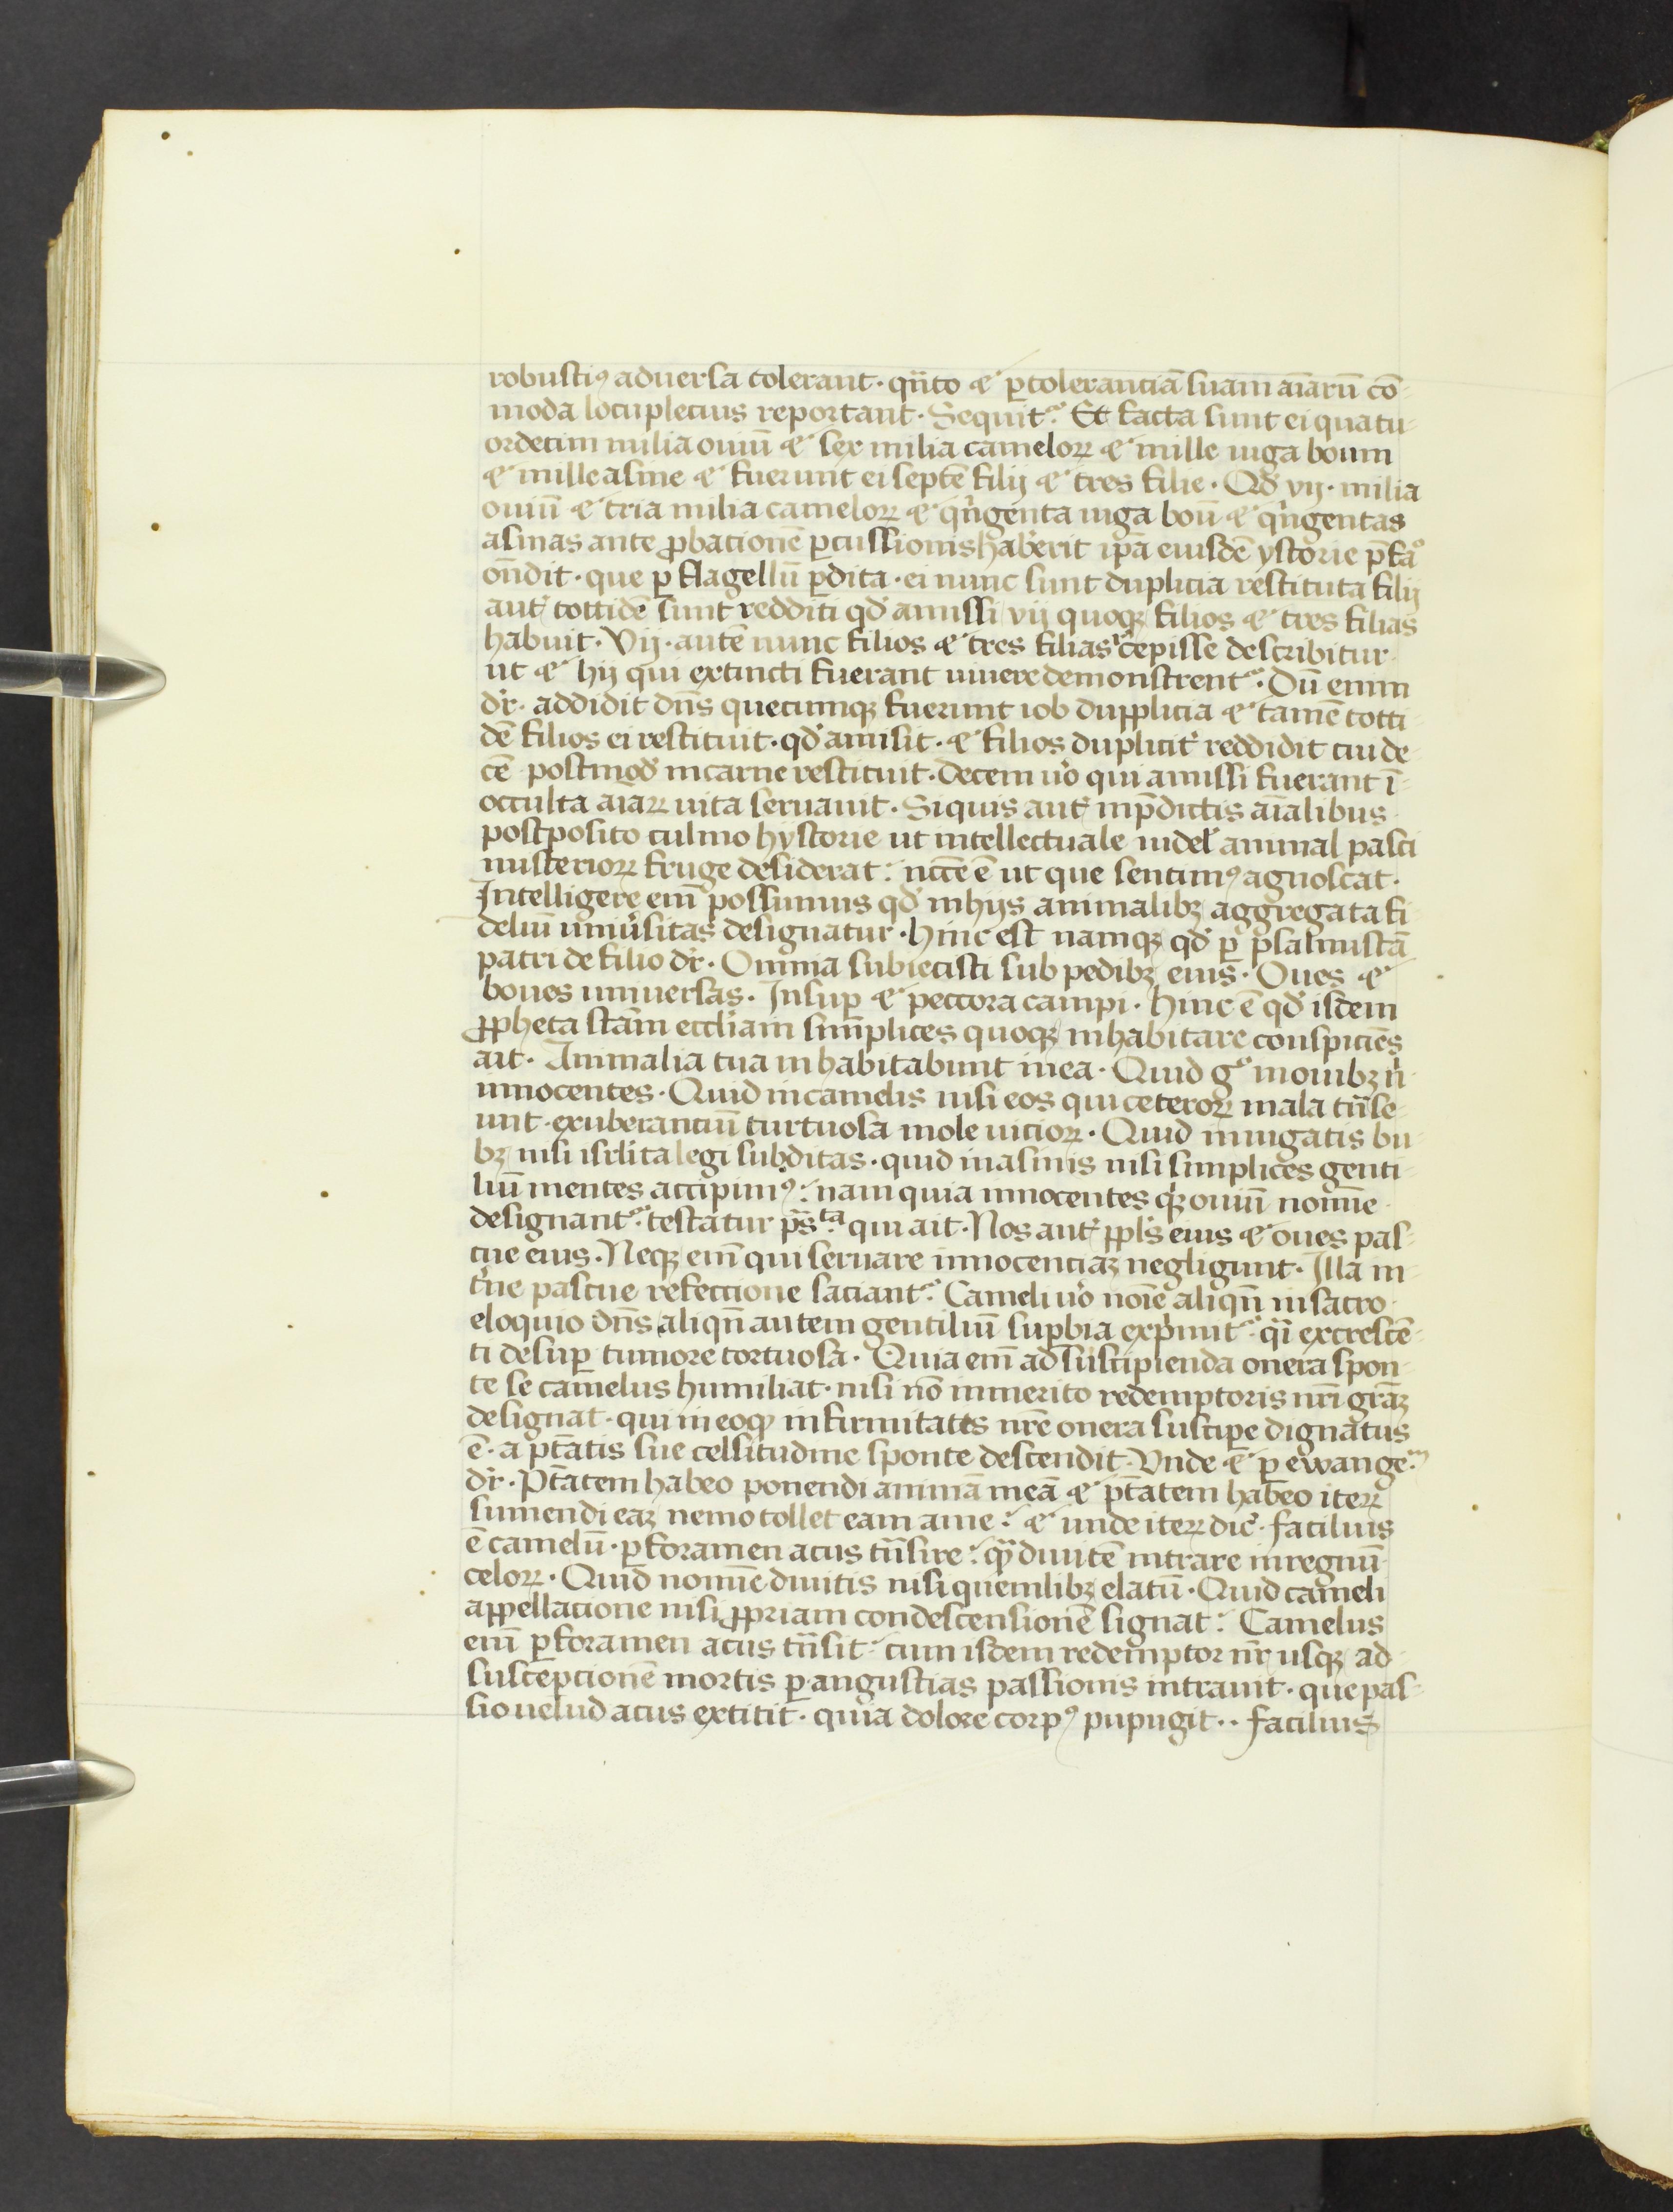 robustiꝰ aduersa tolerant · qn̄to ⁊ ꝑ toleranciā suam aīarū cō-
moda locuplecius reportant · Sequit᷑ · Et facta sunt ei quatu-
ordecim milia ouiū ⁊ sex milia camelorꝝ ⁊ mille iuga boum
⁊ mille asine ⁊ fuerunt ei septē filij ⁊ tres filie · Qd̓ vij · milia
ouiū ⁊ tria milia camelorꝝ ⁊ qi̓ngenta iuga boū ⁊ qi̓ngentas
asinas ante ꝓbacionē ꝑcussionis haberit ip̄a eiusdē ystorie p̄fa°
on̄dit · que ꝑ flagellū ꝑdita · ei nunc sunt duplicia restituta filij
aut̓ tottidē sunt redditi qd̓ amissi vij quoqꝫ filios ⁊ tres filias
habuit · Vij · autē nunc filios ⁊ tres filias r̓cepisse describitur
ut ⁊ hij qui extincti fuerant uiuere demonstrent᷑ · Dū enim
dr̓ · addidit dn̄s quecumqꝫ fuerunt iob dupplicia ⁊ tamē totti-
dē filios ei restituit · qd̓ amisit · ⁊ filios duplicit̓ reddidit cui de-
cē postmod̓ in carne restituit · decem uo̓ qui amissi fuerant ī
occulta aīarꝝ uita seruauit · Si quis aut̓ in p̄dictis aīalibus
postposito culmo hystorie ut intellectuale uidel̓ animal pasci
misteriorꝝ fruge desiderat : nc̄cē ē ut que sentimꝰ agnoscat ·
Intelligere em̄ possumus qd̓ in hijs animalibꝫ aggregata fi-
deliū uniu̓sitas designatur · hinc est namqꝫ qd̓ ꝑ psalmistā
patri de filio dr̓ · Omnia subiecisti sub pedibꝫ eius · Oues ⁊
boues uniuersas · Insuꝑ ⁊ peccora campi · hinc ē qd̓ isdem
ꝓpheta stām eccl̓iam simplices quoqꝫ inhabitare conspiciēs
ait · Animalia tua inhabitabunt in ea · Quid g° in ouibꝫ n̓
innocentes · Quid in camelis nisi eos qui ceterorꝝ mala tn̄se-
unt · exuberanciū turtuosa mole uiciorꝝ · Quid in iugatis bu-
bꝫ nisi isrl̓ita legi subditas · quid in asinis nisi simplices genti-
liū mentes accipimꝰ : nam quia innocentes qꝫ ouiū nomīe
designant᷑ · testatur p̄sta qui ait · Nos aut̓ ppl̓s eius ⁊ oues pas-
cue eius · Neqꝫ em̄ qui seruare innocenciaꝫ negligunt · Illa in-
t̓ne pascue refectione saciant᷑ · Cameli uo̓ noīe aliqn̄ in sacro
eloquio dn̄s aliqn̄ autem gentiliū suꝑbia exp̓imit᷑ · qi̓ excrescē-
ti desuꝑ tumore tortuosa · Quia em̄ ad suscipienda onera spon-
te se camelus humiliat · nisi nō inmerito redemptoris nr̄i grāꝫ
designat · qui in eoqꝫ infirmitatis nr̄e onera susciꝑe dignatus
ē · a ptātis sue celsitudine sponte descendit · Vnde ⁊ ꝑ ewange·m
dr̓ · Ptātem habeo ponendi animā meā ⁊ ptātem habeo iterꝝ
sumendi eaꝫ nemo tollet eam a me : ⁊ unde iterꝝ dic̓ · facilius
ē camelū · ꝑ foramen acus tn̄sire : qꝫ diuitē intrare in regnū
celorꝝ · Quid nomīe diuitis nisi quemlibꝫ elatū · Quid cameli
appellacione nisi ꝓpriam condescensionē signat : Camelus
em̄ ꝑ foramen acus tn̄sit : cum isdem redemptor nr̄ usqꝫ ad
suscepcionē mortis ꝑ angustias passionis intrauit · que pas-
sio uelud acus extitit · quia dolore corpꝰ pupugit · · facilius